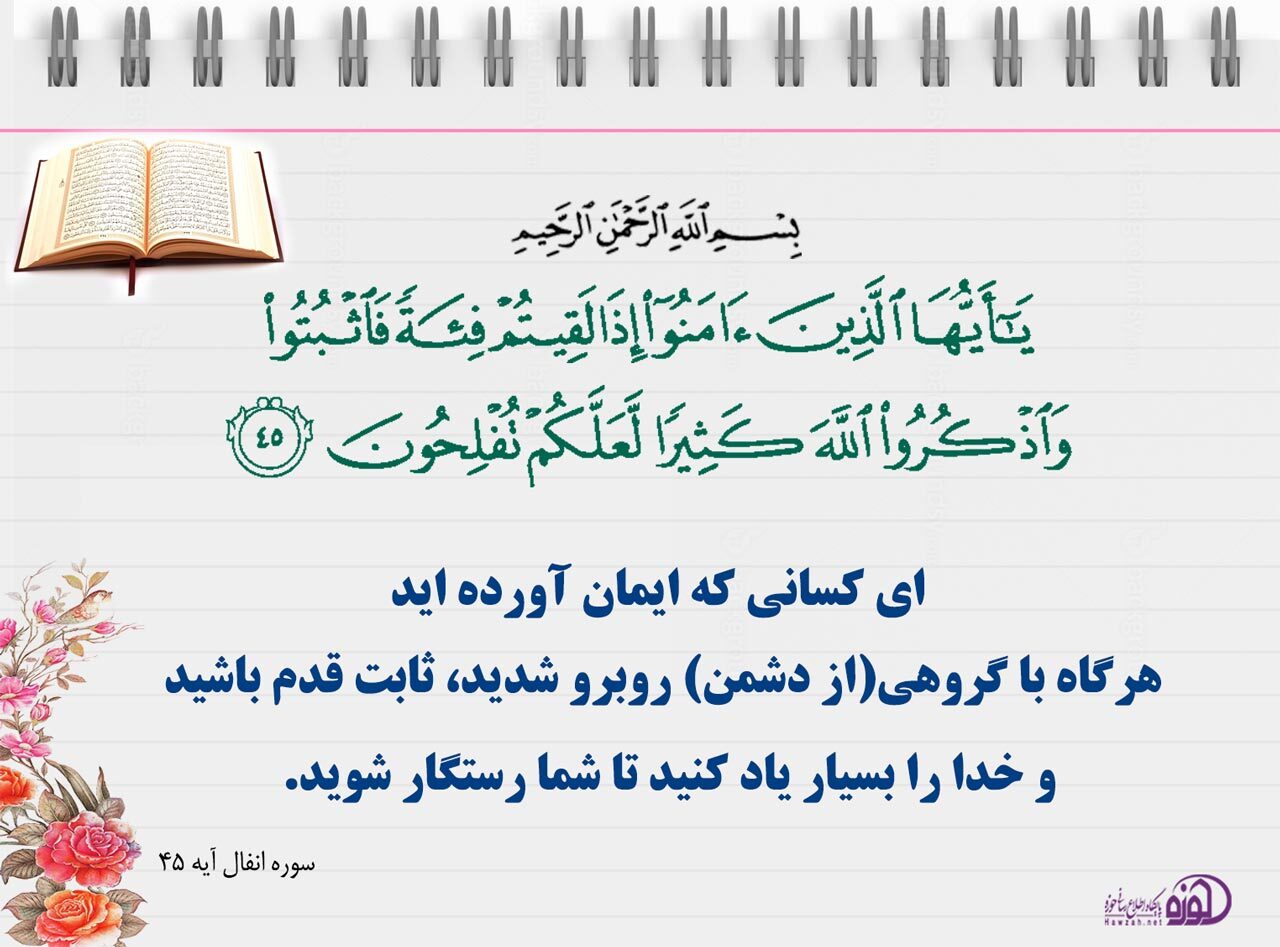 بِسْمِ ٱللَّهِ ٱلرَّحْمَٰنِ ٱلرَّحِيمِ
يَٰٓأَيُّهَا ٱلَّذِينَ ءَامَنُوٓا۟ إِذَا لَقِيتُمْ فِئَةً فَٱثْبُتُوا۟
وَٱذْكُرُوا۟ ٱللَّهَ كَثِيرًا لَّعَلَّكُمْ تُفْلِحُونَ ٤٥
ای کسانی که ایمان آورده اید
هرگاه با گروهی(از دشمن) روبرو شدید، ثابت قدم باشید
و خدا را بسیار یاد کنید تا شما رستگار شوید.
سوره انفال آیه ۴۵
پایگاه اطلاع رسانی حوزه
حوزه
Hawzah.net